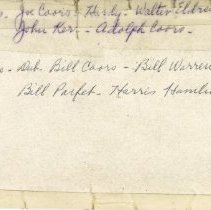 Joe Coors - Hardy - Walter Eldred
John Ker. - Adolph Coors.
- Det. Bill Coors - Bill Warren
Bill Parfet - Harris Hamlin